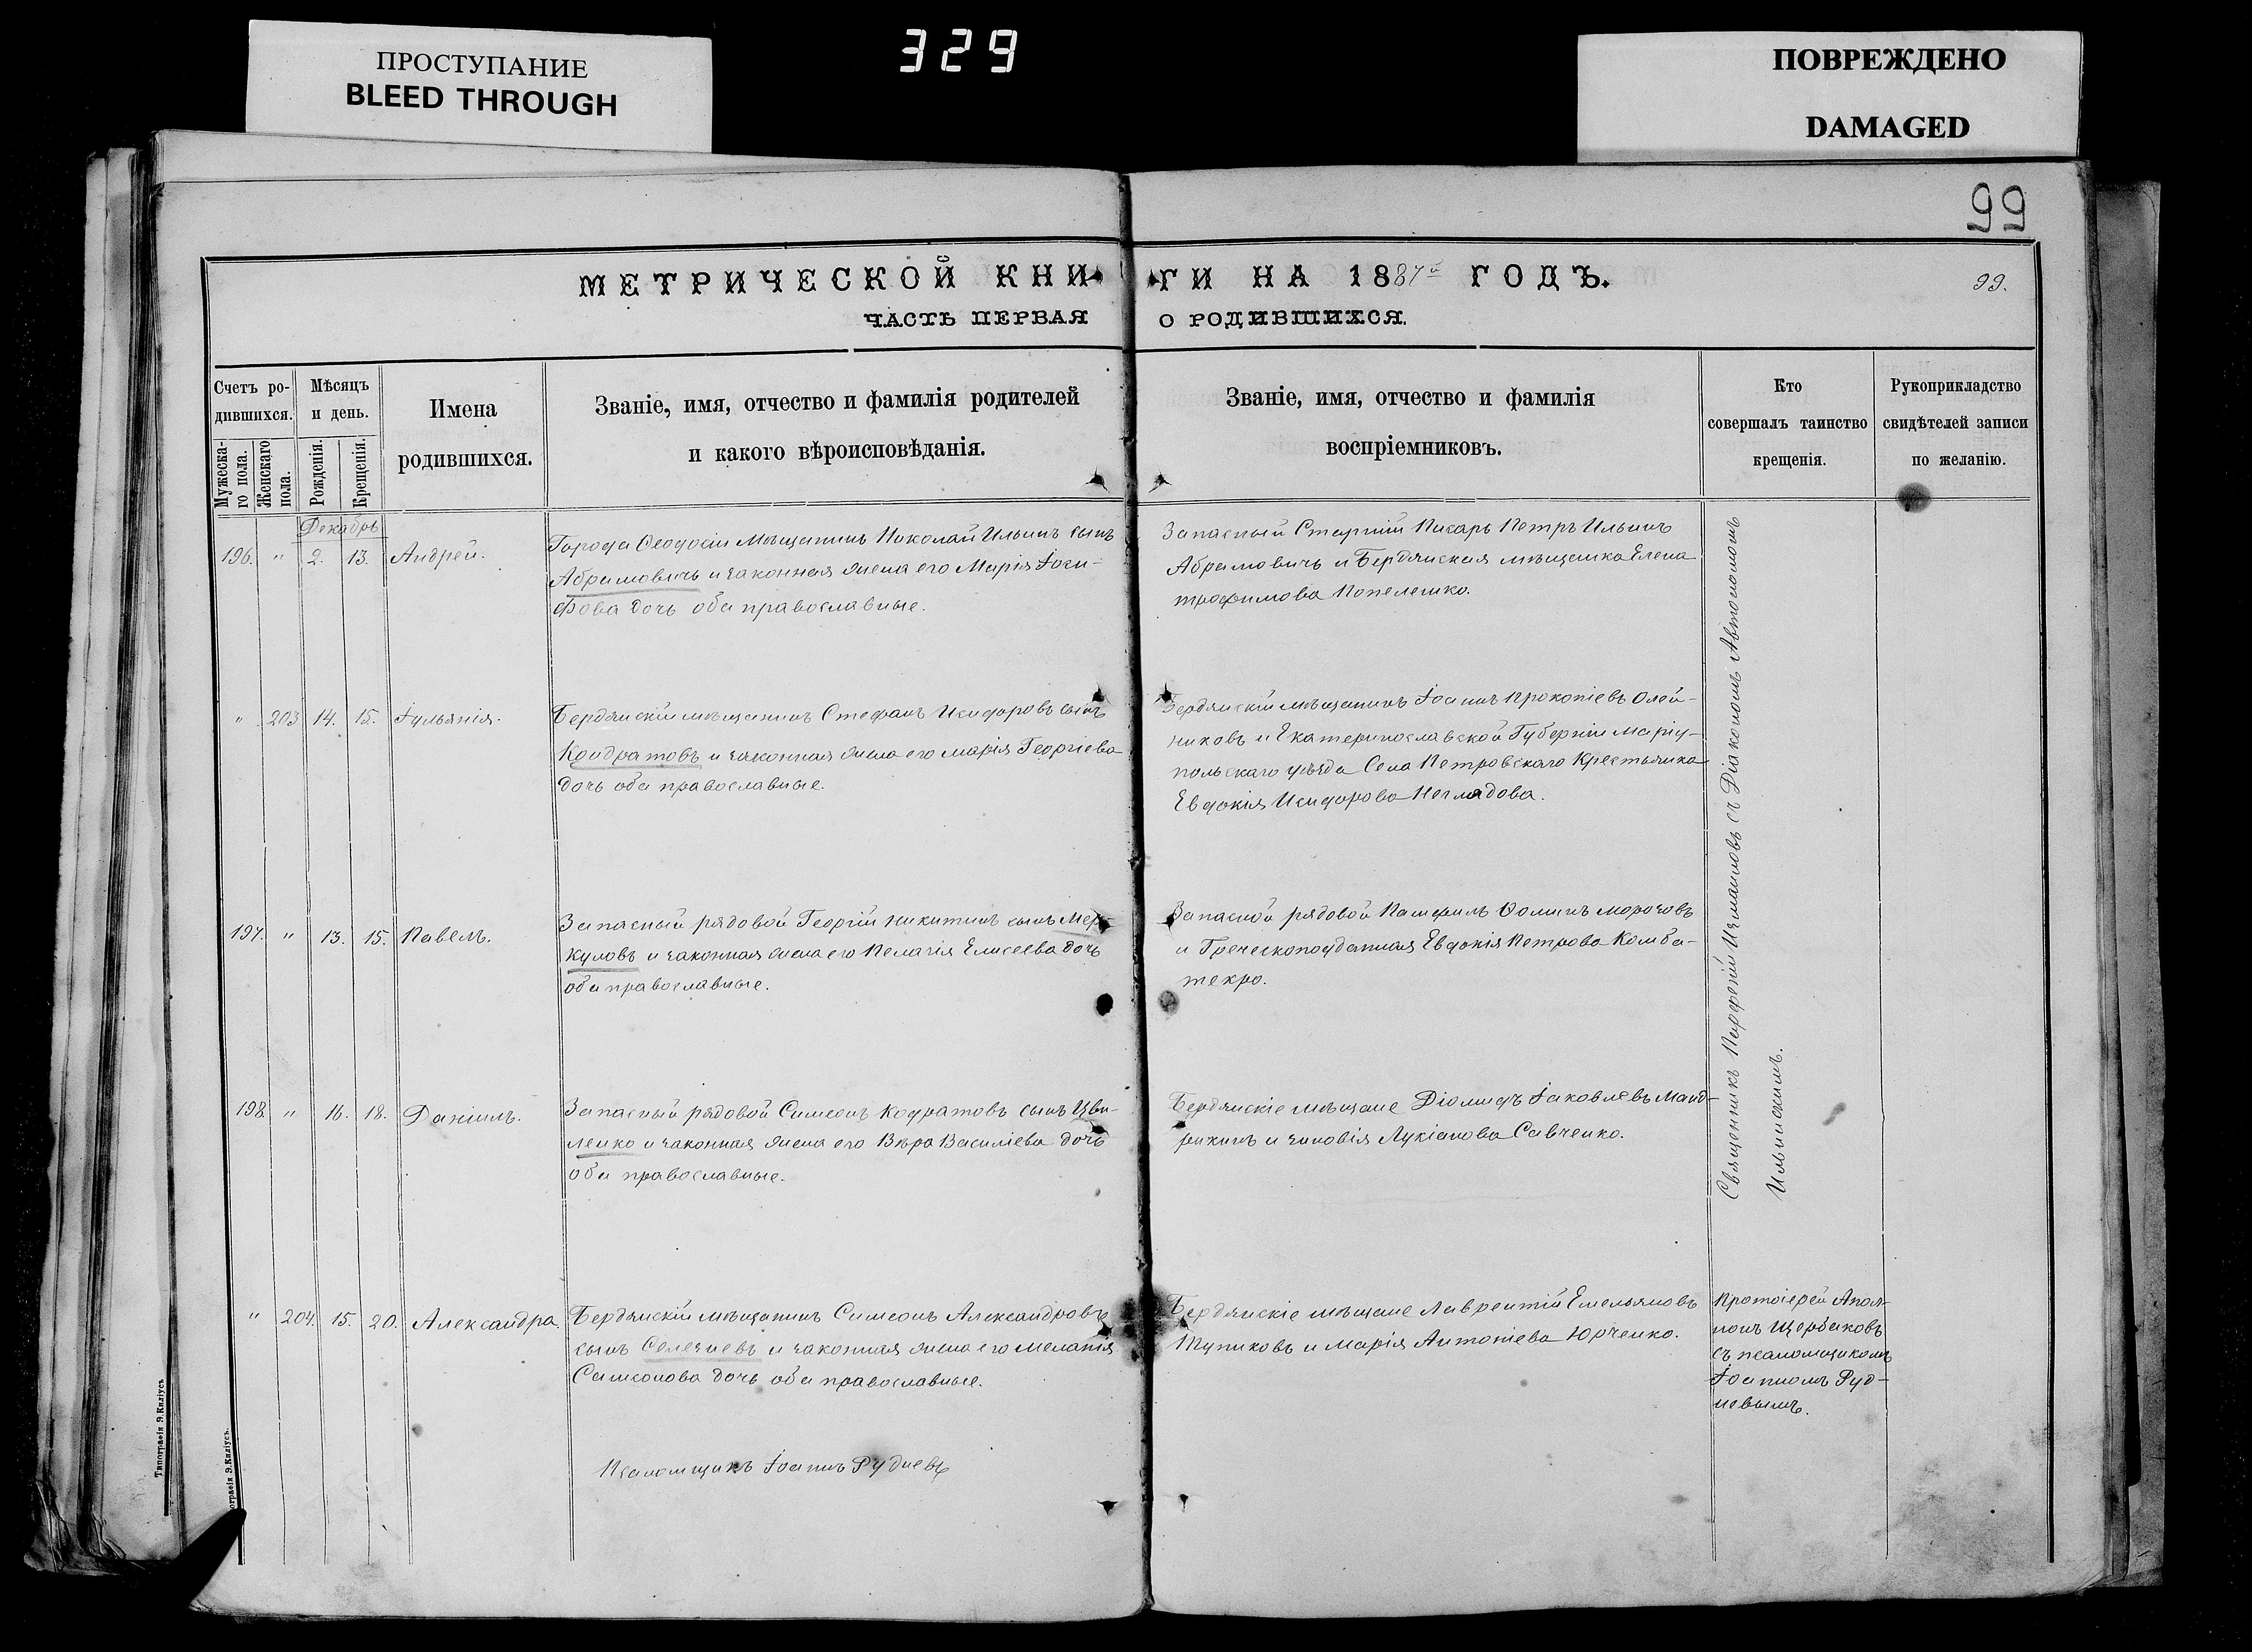 ПРОСТУПАНИЕ
BLEED THROUGH
329
ПОВРЕЖДЕНО
DAMAGED
99
МЕТРИЧЕСКОЙ КНИ-
ГИ НА 1887й ГОДЪ.
99.
ЧАСТЬ ПЕРВАЯ
О РОДИВШИХСЯ.
Счетъ ро-
дившихся.
Мужеска-
го пола.
Женскаго
пола.
Мѣсяцъ
и день.
Рожденія.
Крещенія.
Имена
родившихся.
Званіе, имя, отчество и фамилія родителей
и какого вѣроисповѣданія.
Званіе, имя, отчество и фамилія
воспріемниковъ.
Кто
совершалъ таинство
крещенія.
Рукоприкладство
свидѣтелей записи
по желанію.
Декабрь
196. " 2. 13. Андрей.
Города Ѳеодосіи Мѣщанинъ Николай Ильинъ сынъ
Абрамовичъ и законная жена его Марія Іоси-
фова дочь оба православные.
Запасный Старшій Писарь Петръ Ильинъ
Абрамовичъ и Бердянская мѣщанка Елена
трофимова Попелешко.
" 203 14. 15. Іульянія.
Бердянскій мѣщанинъ Стефанъ Исидоровъ сынъ
Кондратовъ и законная жена его марія Георгіева
дочь оба православные.
Бердянскій мѣщанинъ Іоаннъ Прокопіевъ Олей-
никовъ и Екатеринославской Губерніи Маріу-
польскаго уѣзда Села Петровскаго Крестьянка
Евдокія Исидорова Неглядова.
197. " 13. 15. Павелъ.
Запасный рядовой Георгій никитинъ сынъ Мер-
куловъ и законная жена его Пелагія Елисеева дочь
оба православные.
Запасной рядовой Памфилъ Ѳоминъ морозовъ
и Греческоподданная Евдокія Петрова Комба-
текро.
198. " 16. 18. Даніилъ.
Запасный рядовой Симеонъ Кодратовъ сынъ Цви-
ленко и законная жена его Вѣра Василіева дочь
оба православные.
Бердянскіе мѣщане Діомидъ Іаковлевъ Манд-
рикинъ и зиновія Лукіанова Савченко.
Священникъ Порфирій Измаиловъ съ Діакономъ Автономомъ
Ильинскимъ.
" 204. 15. 20. Александра.
Бердянскій мѣщанинъ Симеонъ Александровъ
сынъ Селезневъ и законная жена его меланія
Самсонова дочь оба православные.
Бердянскіе мѣщане Лаврентій Емельяновъ
Тупиковъ и Марія Антоніева Юрченко.
Протоіерей Апол-
лонъ Щербаковъ
съ псаломщикомъ
Іоанномъ Руд-
невымъ.
Псаломщикъ Іоаннъ Рудневъ
Типографія Э.Килiусъ